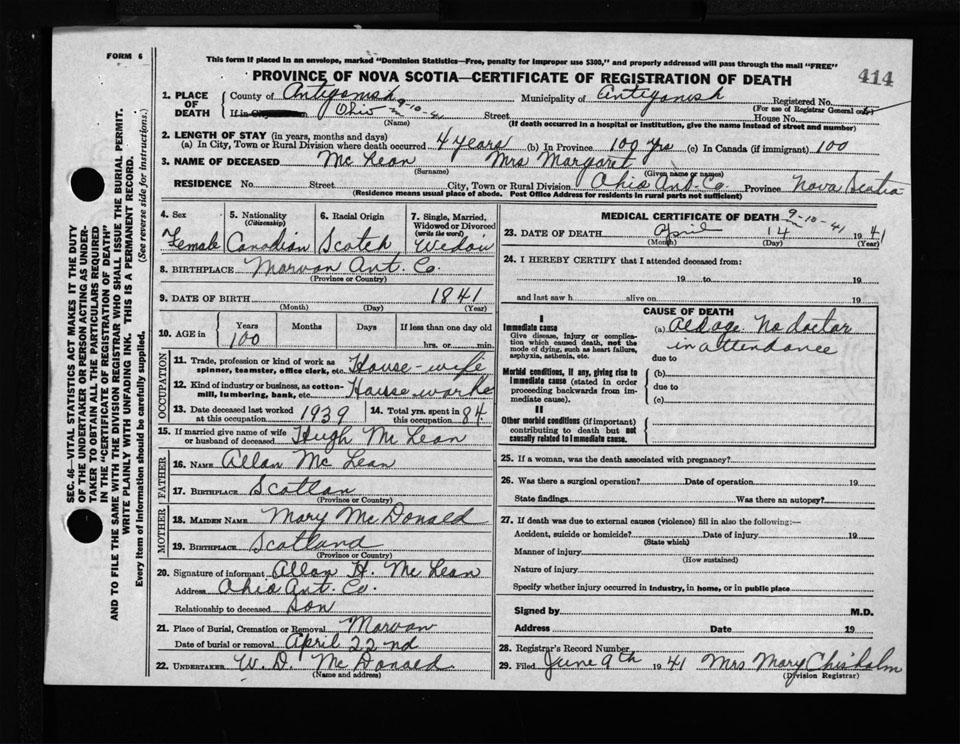 FORM 6
This form if placed in an envelope, marked "Dominion Statistics—Free, penalty for improper use $300," and properly addressed will pass through the mail "FREE"
PROVINCE OF NOVA SCOTIA—CERTIFICATE OF REGISTRATION OF DEATH
414
SEC. 46—VITAL STATISTICS ACT MAKES IT THE DUTY
OF THE UNDERTAKER OR PERSON ACTING AS UNDER-
TAKER TO OBTAIN ALL THE PARTICULARS REQUIRED
IN THE "CERTIFICATE OF REGISTRATION OF DEATH"
AND TO FILE THE SAME WITH THE DIVISION REGISTRAR WHO SHALL ISSUE THE BURIAL PERMIT.
WRITE PLAINLY WITH UNFADING INK. THIS IS A PERMANENT RECORD.
Every item of information should be carefully supplied. (See reverse side for instructions.)
1. PLACE OF DEATH
County of Antigonish Municipality of Antigonish Registered No.
(For use of Registrar General only)
If in Ohio 9-10-41 Street House No.
(Name) (If death occurred in a hospital or institution, give the name instead of street and number)
2. LENGTH OF STAY (in years, months and days)
(a) In City, Town or Rural Division where death occurred 4 years (b) In Province 100 yrs (c) In Canada (if immigrant) 100
3. NAME OF DECEASED McLean Mrs Margaret
(Surname) (Given name or names)
RESIDENCE No. Street City, Town or Rural Division Ohio Ant. Co. Province Nova Scotia
(Residence means usual place of abode. Post Office Address for residents in rural parts not sufficient)
4. Sex
Female
5. Nationality (Citizenship)
Canadian
6. Racial Origin
Scotch
7. Single, Married, Widowed or Divorced (write the word)
Wedow
8. BIRTHPLACE Marvan Ant. Co.
(Province or Country)
9. DATE OF BIRTH 1841
(Month) (Day) (Year)
10. AGE in Years Months Days If less than one day old
100 hrs. or min.
OCCUPATION
11. Trade, profession or kind of work as spinner, teamster, office clerk, etc. House-wife
12. Kind of industry or business, as cotton-mill, lumbering, bank, etc. House worke
13. Date deceased last worked at this occupation 1939
14. Total yrs. spent in this occupation 84
15. If married give name of wife or husband of deceased Hugh McLean
FATHER
16. NAME Allan McLean
17. BIRTHPLACE Scotlan
(Province or Country)
MOTHER
18. MAIDEN NAME Mary McDonald
19. BIRTHPLACE Scotland
(Province or Country)
20. Signature of informant Allan H. McLean
Address Ohio Ant. Co.
Relationship to deceased Son
21. Place of Burial, Cremation or Removal Marvan
Date of burial or removal April 22nd
22. UNDERTAKER W. D. McDonald
(Name and address)
MEDICAL CERTIFICATE OF DEATH 9-10-41
23. DATE OF DEATH April 14 1941
(Month) (Day) (Year)
24. I HEREBY CERTIFY that I attended deceased from:
19 to 19
and last saw h alive on 19
CAUSE OF DEATH
I
Immediate cause
Give disease, injury or complication which caused death, not the mode of dying, such as heart failure, asphyxia, asthenia, etc.
(a) Old age. No doctor
in attendance
due to
Morbid conditions, if any, giving rise to immediate cause (stated in order proceeding backwards from immediate cause).
(b)
due to
(c)
II
Other morbid conditions (if important) contributing to death but not causally related to immediate cause.
25. If a woman, was the death associated with pregnancy?
26. Was there a surgical operation? Date of operation 19
State findings Was there an autopsy?
27. If death was due to external causes (violence) fill in also the following:—
Accident, suicide or homicide? Date of injury 19
(State which)
Manner of injury
(How sustained)
Nature of injury
Specify whether injury occurred in industry, in home, or in public place
Signed by M.D.
Address Date 19
28. Registrar's Record Number
29. Filed June 9th 1941 Mrs Mary Chisholm
(Division Registrar)